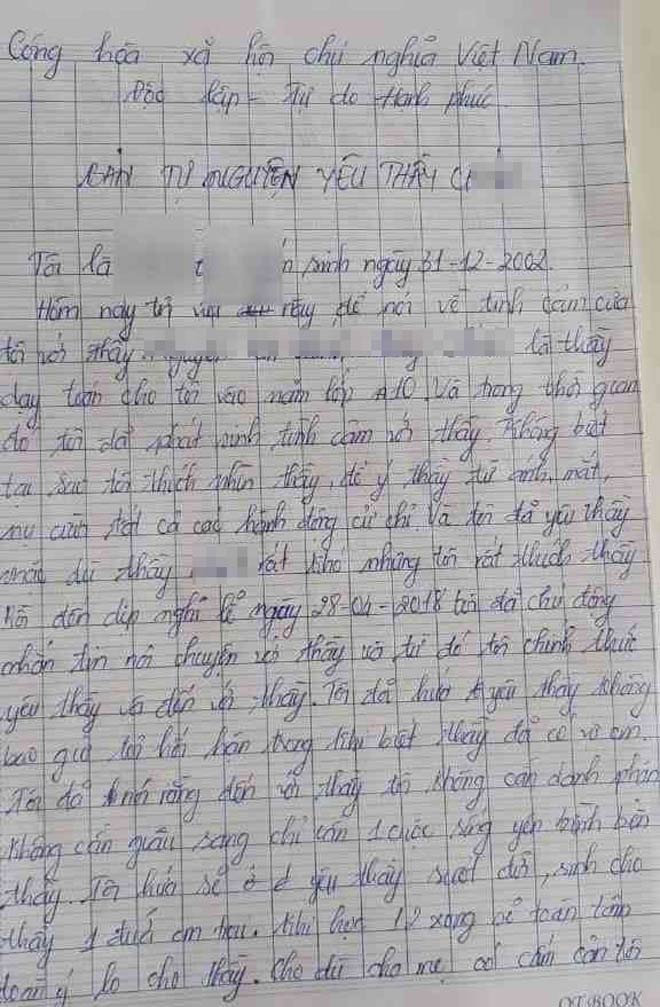 Cộng hòa xã hội chủ nghĩa Việt Nam.
Độc lập - Tự do Hạnh phúc
BẢN TỰ NGUYỆN YÊU THẦY C
Tôi là sinh ngày 31-12-2002.
Hôm nay tôi này để nói về tình cảm của
tôi với thầy là thầy
dạy toán cho tôi vào năm lớp A10. Và trong thời gian
đó tôi đã phát sinh tình cảm với thầy. Không biết
tại sao tôi thích nhìn thầy, để ý thầy từ ánh mắt,
nụ cười tất cả các hành động cử chỉ. Và tôi đã yêu thầy
mặc dù thầy rất khó nhưng tôi rất thích thầy
đến dịp nghỉ lễ ngày 28-04-2018 tôi đã chủ động
nhắn tin nói chuyện với thầy và từ đó tôi chính thức
yêu thầy và đến với thầy. Tôi đã hứa yêu thầy không
bao giờ tôi hối hận trong khi biết thầy đã có vợ con.
Tôi đã rằng đến với thầy tôi không cần danh phận
không cần giàu sang chỉ cần 1 cuộc sống yên bình bên
thầy. Tôi hứa sẽ yêu thầy suốt đời, sinh cho
thầy 1 đứa con trai. Khi học 12 xong sẽ toàn tâm
toàn ý lo cho thầy. Cho dù cha mẹ có cấm cản tôi